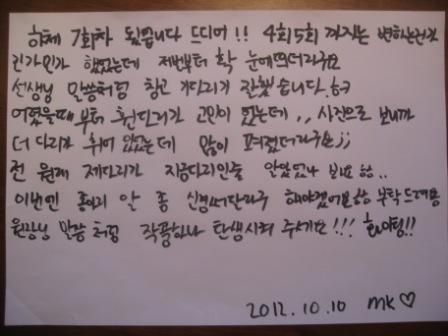 하체 7회차 됬습니다 드디어!! 4회5회 까지는 변하는건가
긴가민가 했었는데 저번부터 확 눈에띄더라구요
선생님 말씀처럼 참고 기다리기 잘했습니다. ㅎㅎ
어렸을때부터 휜다리가 고민이 였는데,, 사진으로 보니까
더 다리가 휘어 있었는데 많이 펴졌더라구요;;
전 원래 제다리가 지금다리인줄 알았었나 보네요 ㅎㅎ..
이번엔 종아리 알 좀 신경써달라구 해야겠어요 ㅎㅎ 부탁드려용
원장님 말씀처럼 작품하나 탄생시켜 주세요!!! 화이팅!!
2012.10.10 MK♡